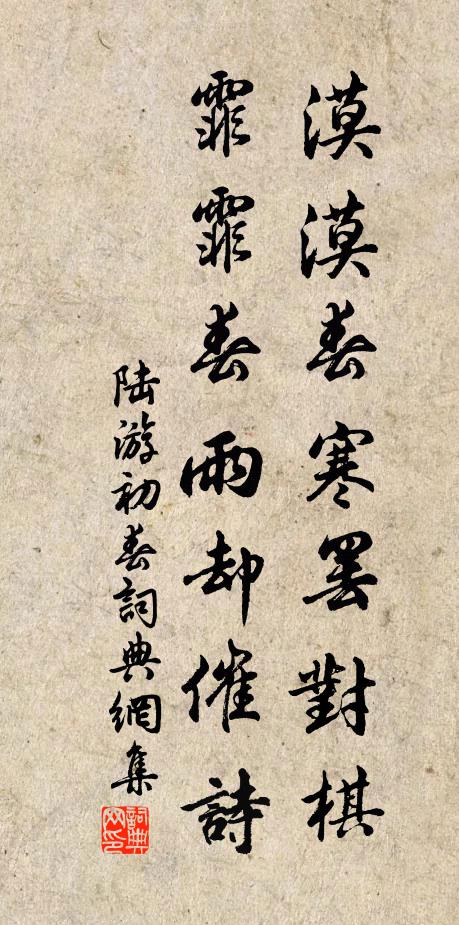 漠漠春寒罢對棋
霏霏春雨却催詩
陆游初春詞典網集
詞典网印